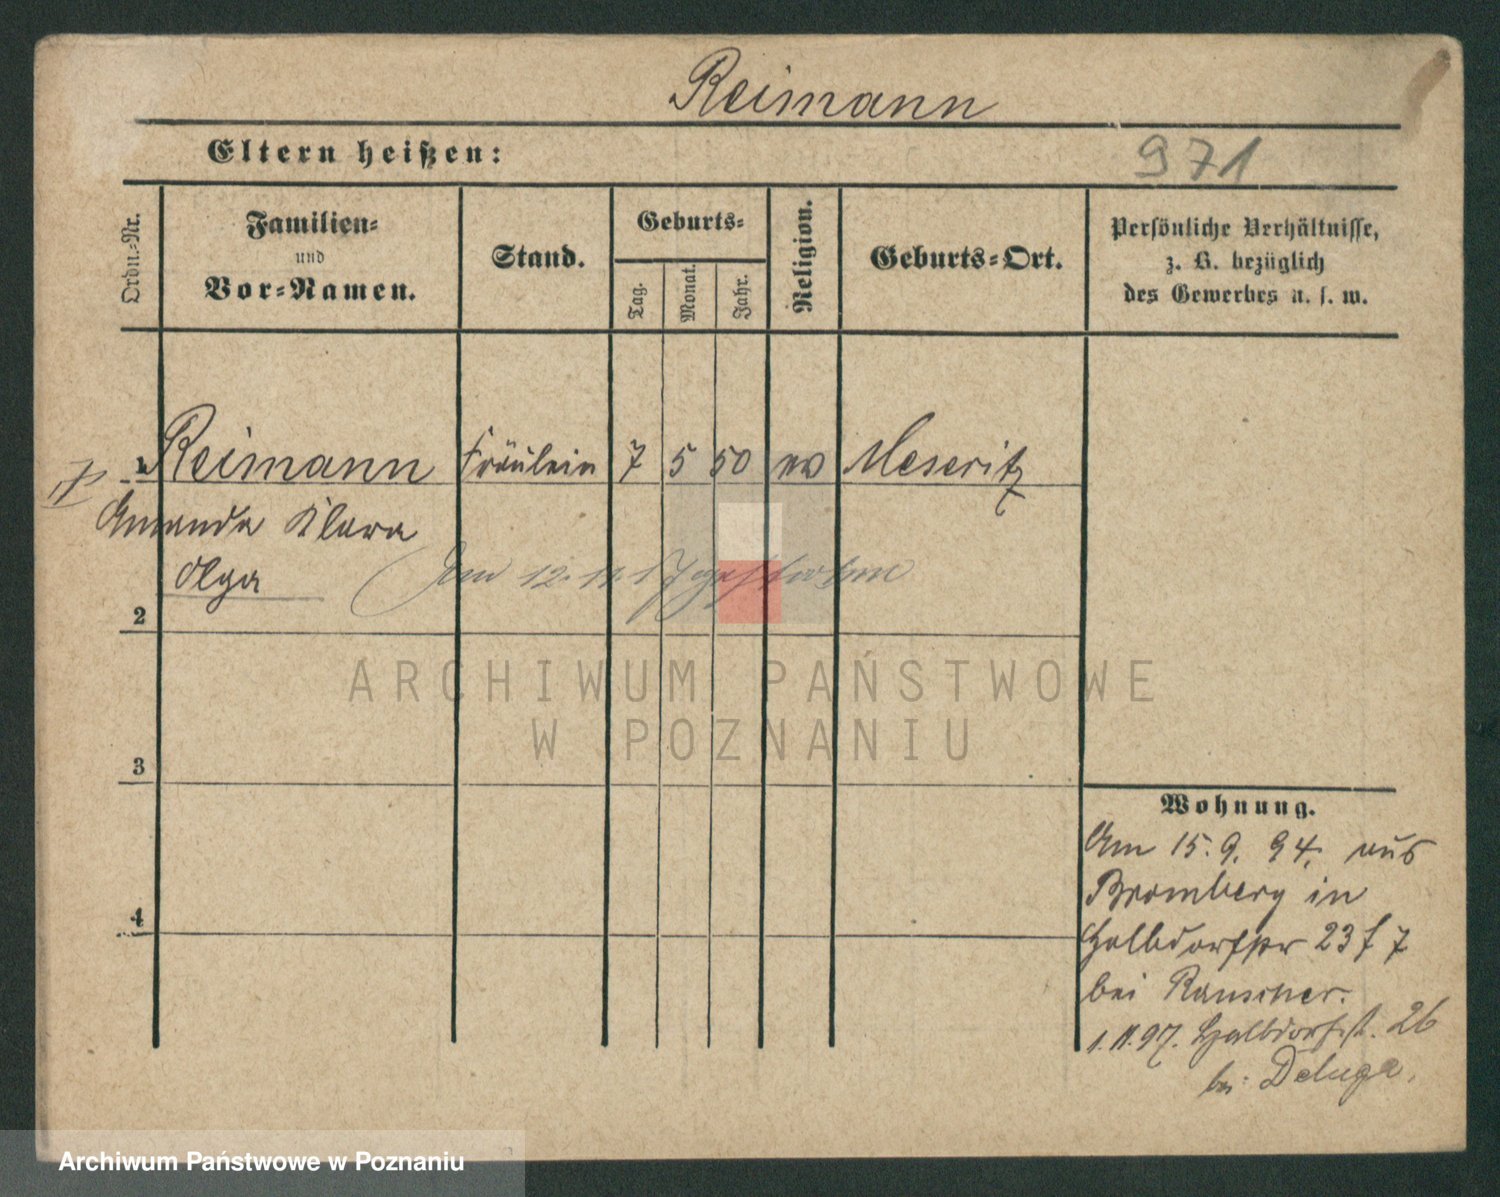 Reimann
Eltern heißen:
971
Ordn.-Nr.
Familien-
und
Vor-Namen.
Stand.
Geburts-
Tag.
Monat.
Jahr.
Religion.
Geburts-Ort.
Persönliche Verhältnisse,
z. B. bezüglich
des Gewerbes u. s. w.
1 Reimann Fräulein 7 5 50 ev Meseritz
Amanda Klara
Olga
Am 12.11.17 gestorben
2
ARCHIWUM PAŃSTWOWE
W POZNANIU
3
4
Wohnung.
Am 15. 9. 94. aus
Bromberg in
Halbdorfstr 23 f 7
bei Rauscher.
1.11.97. Halbdorfst. 26
bei Deluga.
Archiwum Państwowe w Poznaniu